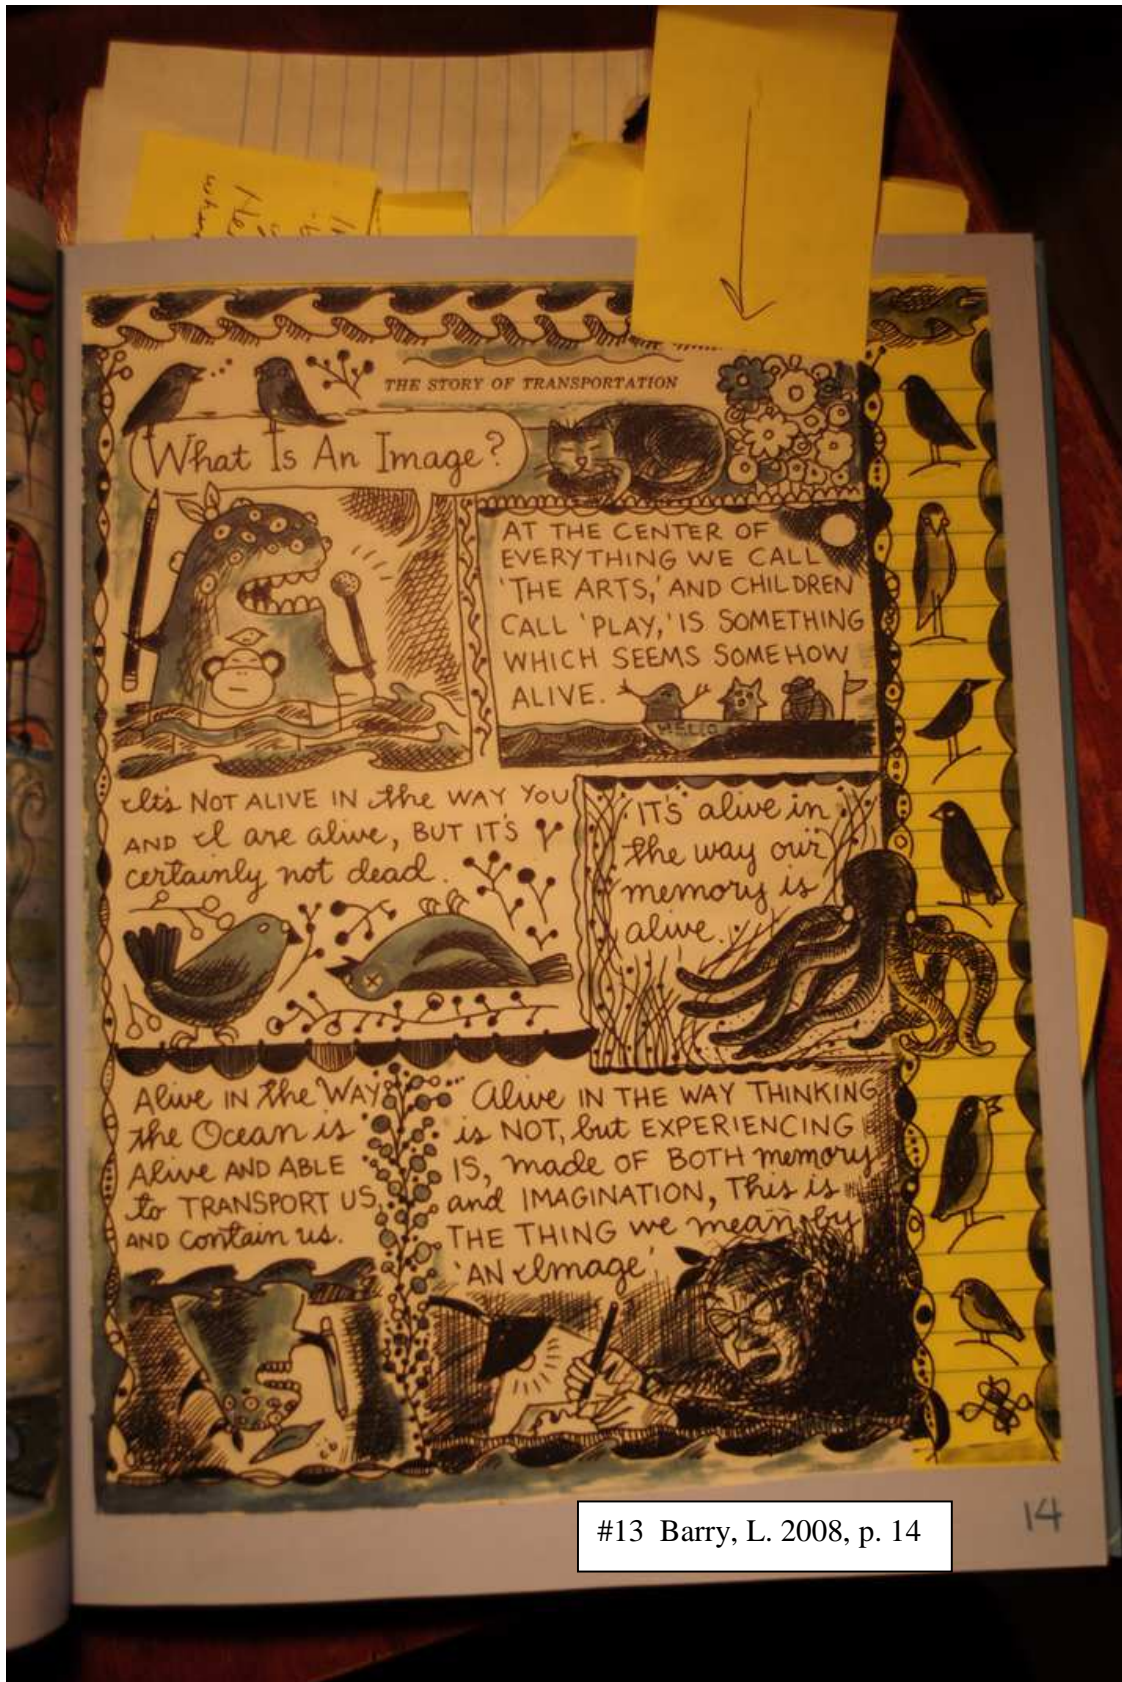 THE STORY OF TRANSPORTATION
What Is An Image?
AT THE CENTER OF
EVERYTHING WE CALL
'THE ARTS,' AND CHILDREN
CALL 'PLAY,' IS SOMETHING
WHICH SEEMS SOMEHOW
ALIVE.
HELLO
It's NOT ALIVE IN the WAY YOU
AND I are alive, BUT IT'S
certainly not dead.
IT'S alive in
the way our
memory is
alive.
Alive IN the WAY
the Ocean is
Alive AND ABLE
to TRANSPORT US,
AND contain us.
Alive IN THE WAY THINKING
is NOT, but EXPERIENCING
IS, made OF BOTH memory
and IMAGINATION, This is
THE THING we mean by
'AN Image'
#13 Barry, L. 2008, p. 14
14